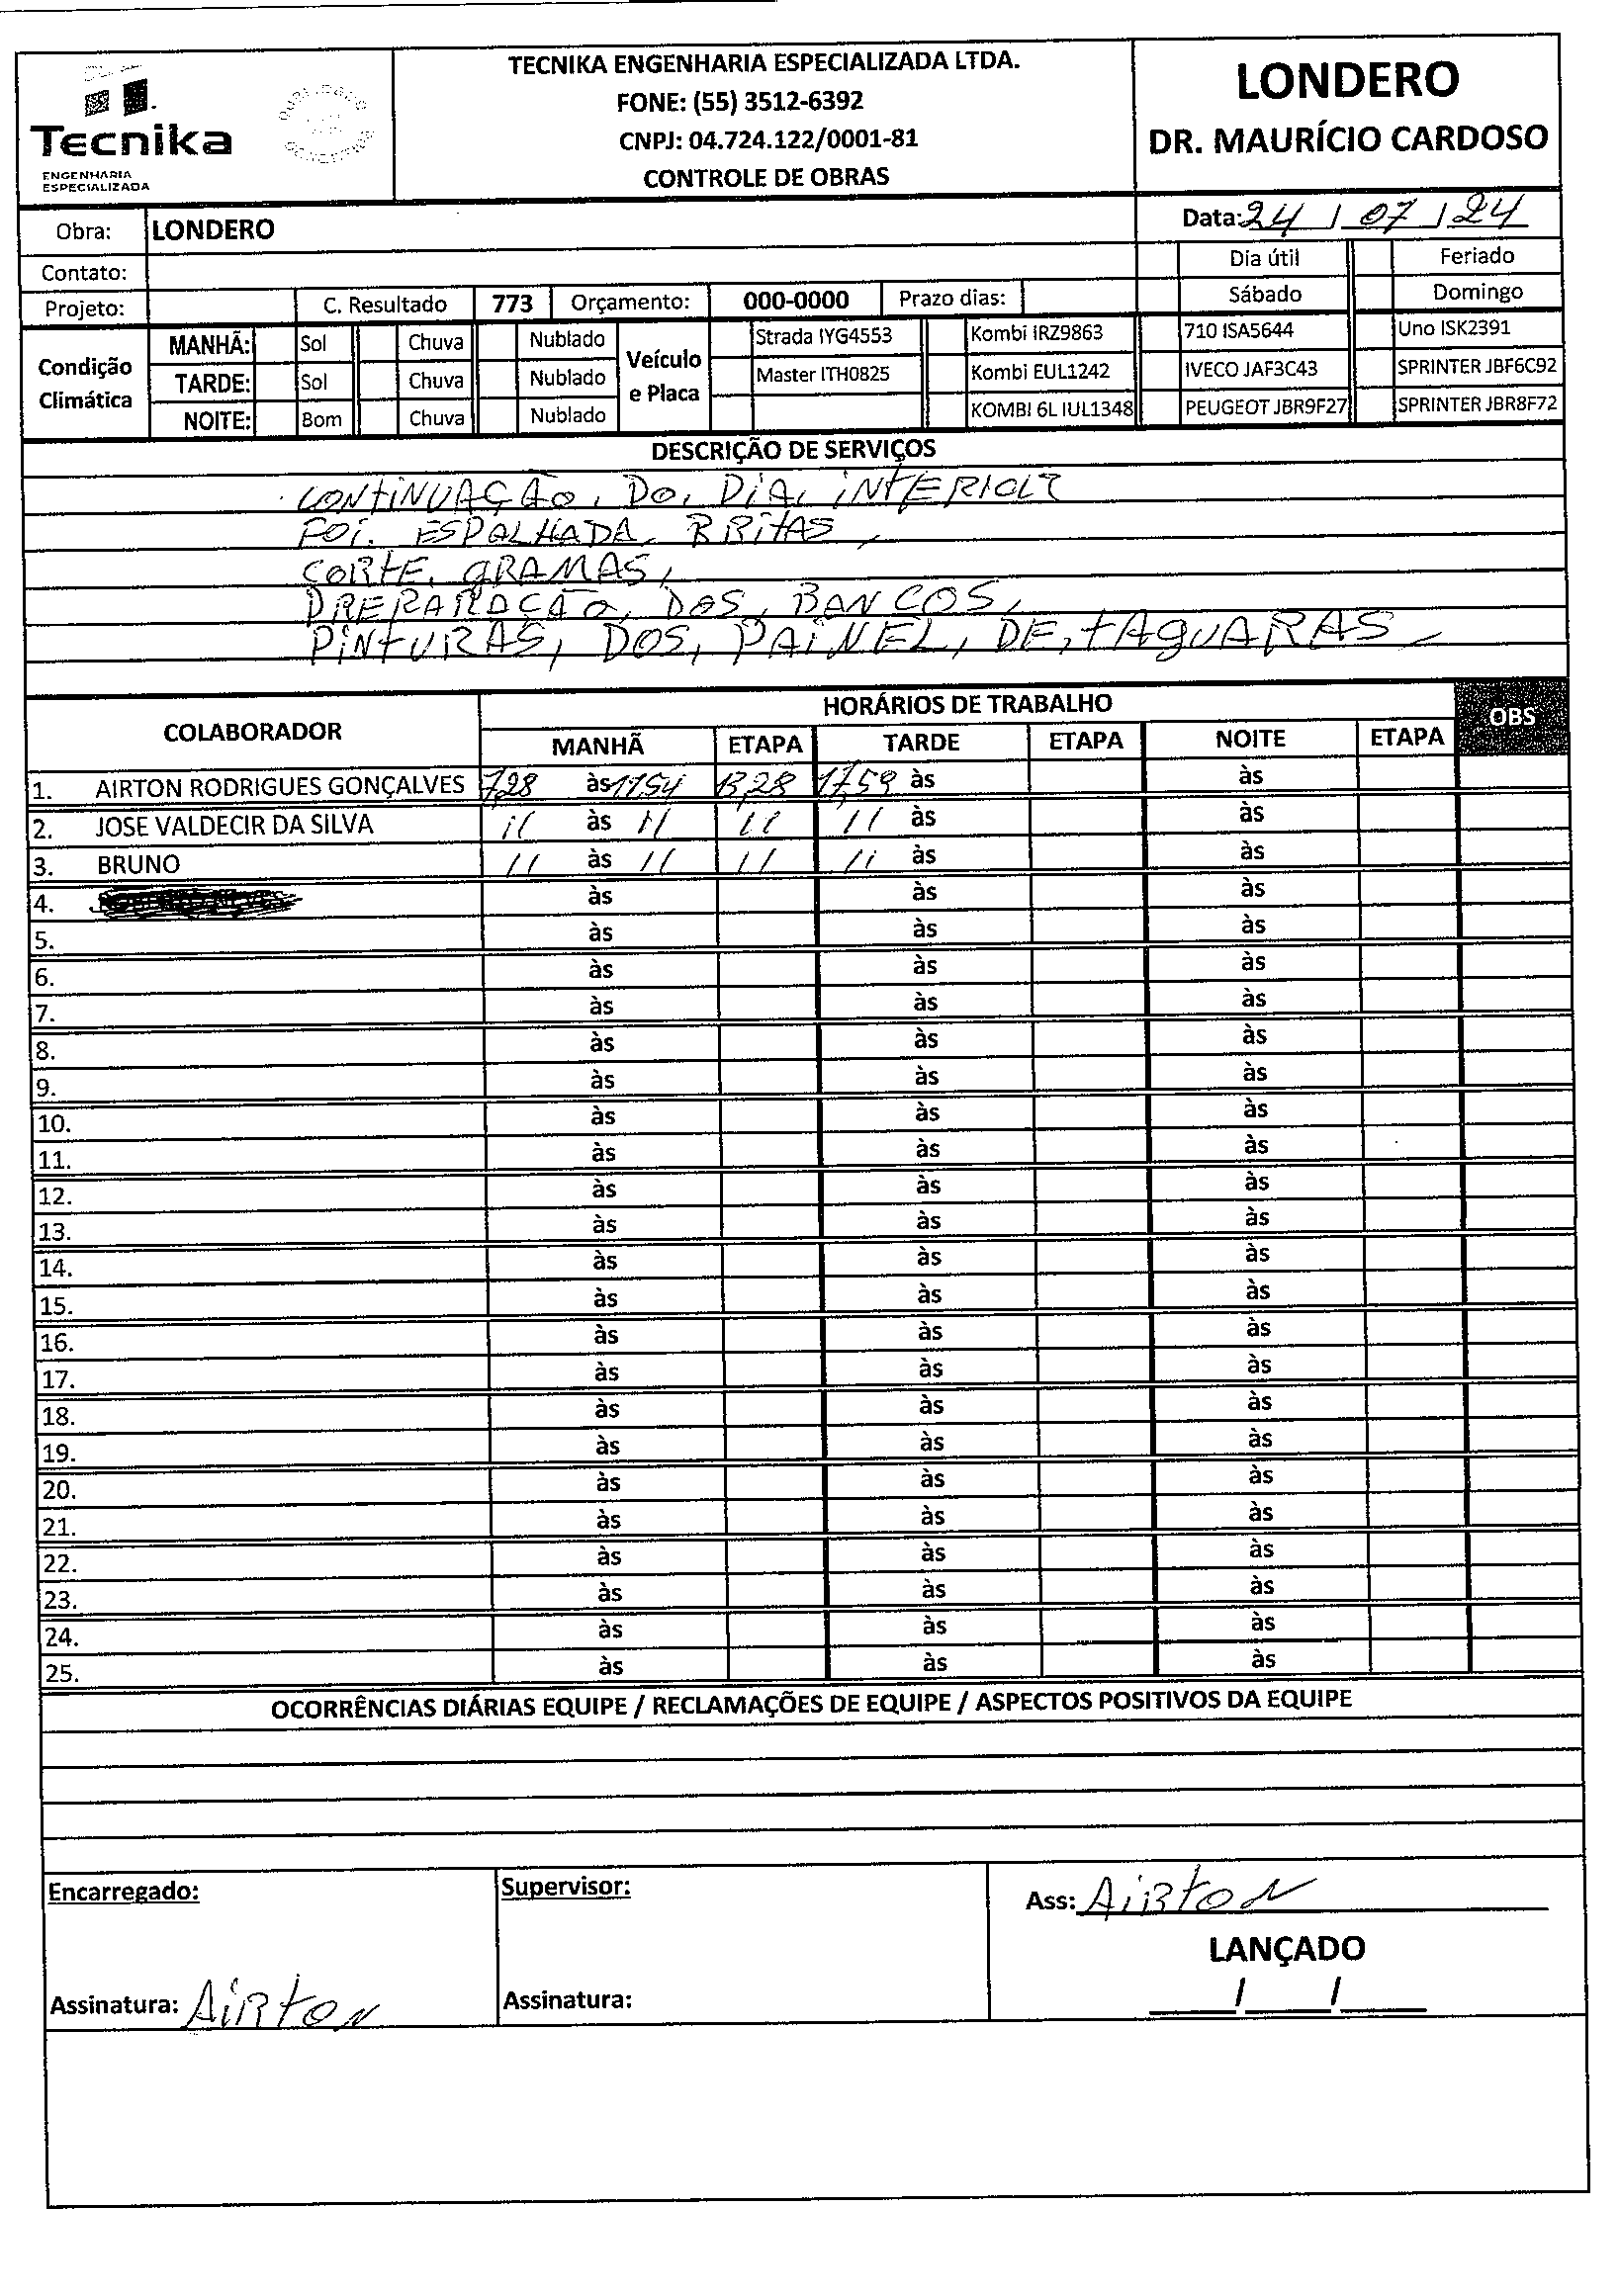 TECNIKA ENGENHARIA ESPECIALIZADA LTDA.
FONE: (55) 3512-6392
CNPJ: 04.724.122/0001-81
CONTROLE DE OBRAS
Tecnika
ENGENHARIA
ESPECIALIZADA
LONDERO
DR. MAURÍCIO CARDOSO
Obra: LONDERO
Data: 24 / 07 / 24
Contato:
Dia útil Feriado
Projeto: C. Resultado 773 Orçamento: 000-0000 Prazo dias: Sábado Domingo
Condição Climática
MANHÃ: Sol Chuva Nublado
TARDE: Sol Chuva Nublado
NOITE: Bom Chuva Nublado
Veículo e Placa
Strada IYG4553 Kombi IRZ9863 710 ISA5644 Uno ISK2391
Master ITH0825 Kombi EUL1242 IVECO JAF3C43 SPRINTER JBF6C92
KOMBI 6L IUL1348 PEUGEOT JBR9F27 SPRINTER JBR8F72
DESCRIÇÃO DE SERVIÇOS
CONTINUAÇÃO, DO, DIA, INTERIOR
FOI. ESPALHADA, BRITAS,
CORTE, GRAMAS,
PREPARAÇÃO, DOS, BANCOS,
PINTURAS, DOS, PAINEL, DE, TAGUARAS
COLABORADOR HORÁRIOS DE TRABALHO OBS
MANHÃ ETAPA TARDE ETAPA NOITE ETAPA
1. AIRTON RODRIGUES GONÇALVES 7,28 às 11,54 13,28 17,59 às às
2. JOSE VALDECIR DA SILVA 11 às 11 11 11 às às
3. BRUNO 11 às 11 11 11 às às
4. às às às
5. às às às
6. às às às
7. às às às
8. às às às
9. às às às
10. às às às
11. às às às
12. às às às
13. às às às
14. às às às
15. às às às
16. às às às
17. às às às
18. às às às
19. às às às
20. às às às
21. às às às
22. às às às
23. às às às
24. às às às
25. às às às
OCORRÊNCIAS DIÁRIAS EQUIPE / RECLAMAÇÕES DE EQUIPE / ASPECTOS POSITIVOS DA EQUIPE
Encarregado:
Assinatura: AIRTON
Supervisor:
Assinatura:
Ass: AIRTON
LANÇADO
___/___/___